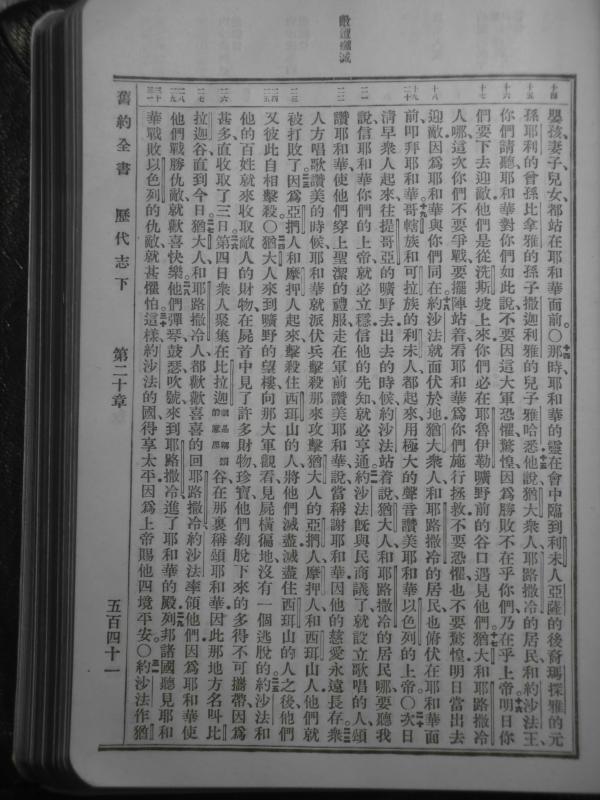 敵遭殲滅
嬰孩妻子兒女都站在耶和華面前。○那時耶和華的靈在會中臨到利未人亞薩的後裔瑪探雅的元
孫耶利的曾孫比拿雅的孫子撒迦利雅的兒子雅哈悉他說猶大衆人耶路撒冷的居民和約沙法王
你們請聽耶和華對你們如此說不要因這大軍恐懼驚惶因爲勝敗不在乎你們乃在乎上帝明日你
們要下去迎敵他們是從洗斯坡上來你們必在耶魯伊勒曠野前的谷口遇見他們猶大和耶路撒冷
人哪這次你們不要爭戰要擺陣站着看耶和華爲你們施行拯救不要恐懼也不要驚惶明日當出去
迎敵因爲耶和華與你們同在約沙法就面伏於地猶大衆人和耶路撒冷的居民也俯伏在耶和華面
前叩拜耶和華哥轄族和可拉族的利未人都起來用極大的聲音讚美耶和華以色列的上帝○次日
清早衆人起來往提哥亞的曠野去出去的時候約沙法站着說猶大人和耶路撒冷的居民哪要聽我
說信耶和華你們的上帝就必立穩信他的先知就必亨通約沙法旣與民商議了就設立歌唱的人頌
讚耶和華使他們穿上聖潔的禮服走在軍前讚美耶和華說當稱謝耶和華因他的慈愛永遠長存衆
人方唱歌讚美的時候耶和華就派伏兵擊殺那來攻擊猶大人的亞捫人摩押人和西珥山人他們就
被打敗了因爲亞捫人和摩押人起來擊殺住西珥山的人將他們滅盡滅盡住西珥山的人之後他們
又彼此自相擊殺○猶大人來到曠野的望樓向那大軍觀看見屍橫徧地沒有一個逃脫的約沙法和
他的百姓就來收取敵人的財物在屍首中見了許多財物珍寶他們剝脫下來的多得不可攜帶因爲
甚多直收取了三日第四日衆人聚集在比拉迦谷在那裏稱頌耶和華因此那地方名叫比
拉迦谷直到今日猶大人和耶路撒冷人都歡歡喜喜的回耶路撒冷約沙法率領他們因爲耶和華使
他們戰勝仇敵就歡喜快樂他們彈琴鼓瑟吹號來到耶路撒冷進了耶和華的殿列邦諸國聽見耶和
華戰敗以色列的仇敵就甚懼怕這樣約沙法的國得享太平因爲上帝賜他四境平安○約沙法作猶
舊約全書 歷代志下 第二十章 五百四十一